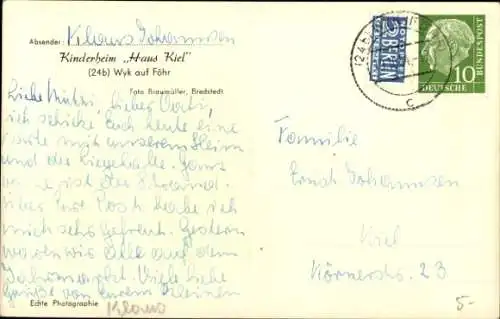 Absender: Klaus Johannsen
Kinderheim „Haus Kiel"
(24b) Wyk auf Föhr
Foto Braumüller, Bredstedt
Liebe Mutti, lieber Vati,
ich schicke Euch heute eine
Karte mit unserem Heim
und der Liegehalle. Ganz
vorne ist der Strand.
Über Eure Post habe ich
mich sehr gefreut. Gestern
waren wir alle auf dem
Jahrmarkt. Viele liebe
Grüße von eurem kleinen
Klaus
Echte Photographie
NOTOPFER
2 BERLIN
STEUERMARKE
(24b)
c
10
DEUTSCHE
BUNDESPOST
Familie
Ernst Johannsen
Kiel
Körnerstr. 23
5-